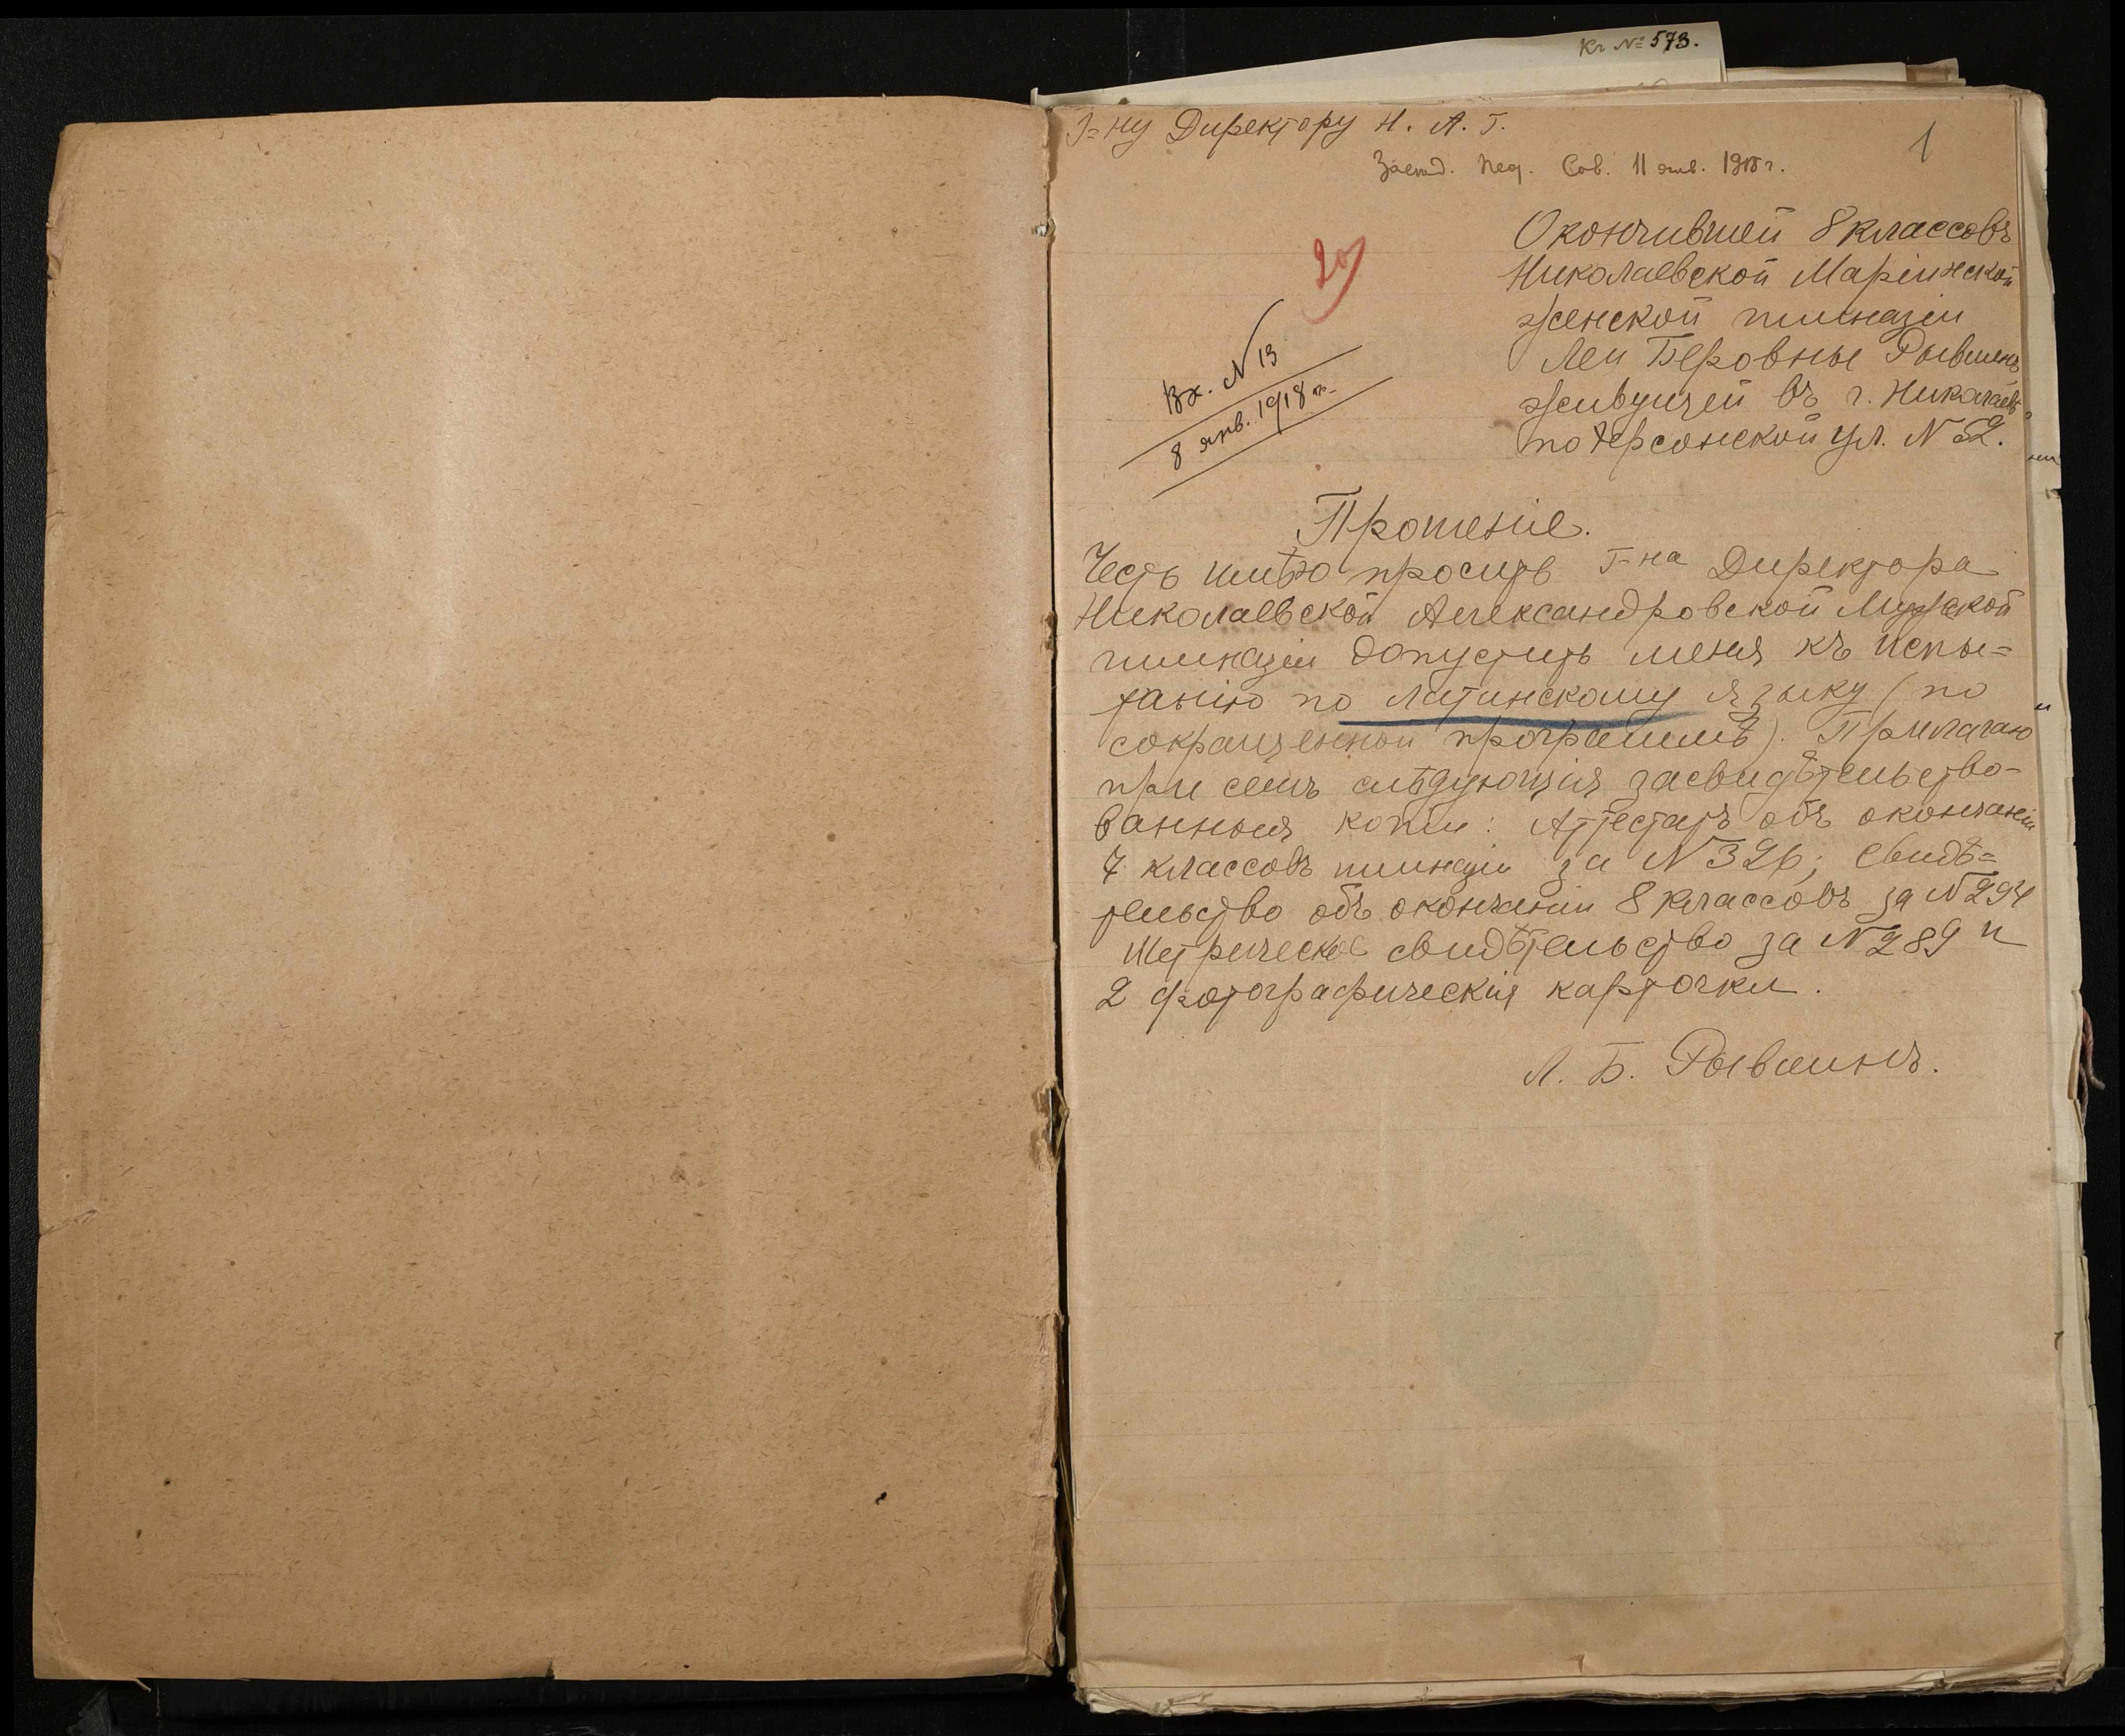 Кг № 573.
Г=ну Директору Н. А. Г.
1
Засѣд. Пед. Сов. 11 янв. 1918 г.
20
Окончившей 8 классовъ
Николаевской Маріинской
женской гимназіи
Леи Беровны Рывкинъ
живущей въ г. Николаевѣ
по Херсонской ул. N 52.
Вх. N 13
8 янв. 1918 г.
Прошеніе.
Честь имѣю просить Г-на Директора
Николаевской Александровской Мужской
гимназіи допустить меня къ испы=
танію по латинскому языку (по
сокращенной программѣ). Прилагаю
при семъ слѣдующія засвидѣтельство-
ванныя копіи: Аттестатъ объ окончаніи
7 классовъ гимназіи за N 326; свидѣ=
тельство объ окончаніи 8 классовъ за N 294
Метрическое свидѣтельство за N 289 и
2 фотографическія карточки.
Л. Б. Рывкинъ.